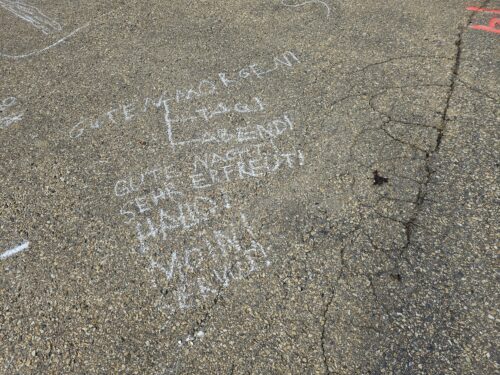 GUTEN MORGEN!
TAG!
ABEND!
GUTE NACHT!
SEHR ERFREUT!
HALLO!
MOIN!